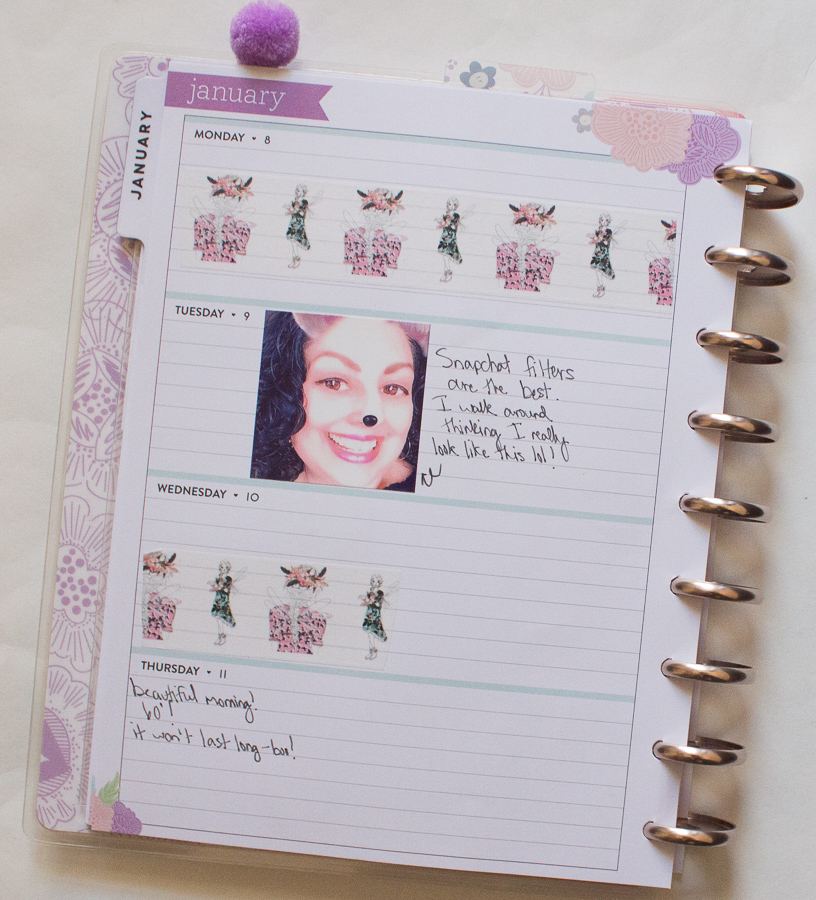 january
JANUARY
MONDAY • 8
TUESDAY • 9
Snapchat filters
are the best.
I walk around
thinking I really
look like this lol!
WEDNESDAY • 10
THURSDAY • 11
beautiful morning!
60°!
it won't last long-boo!